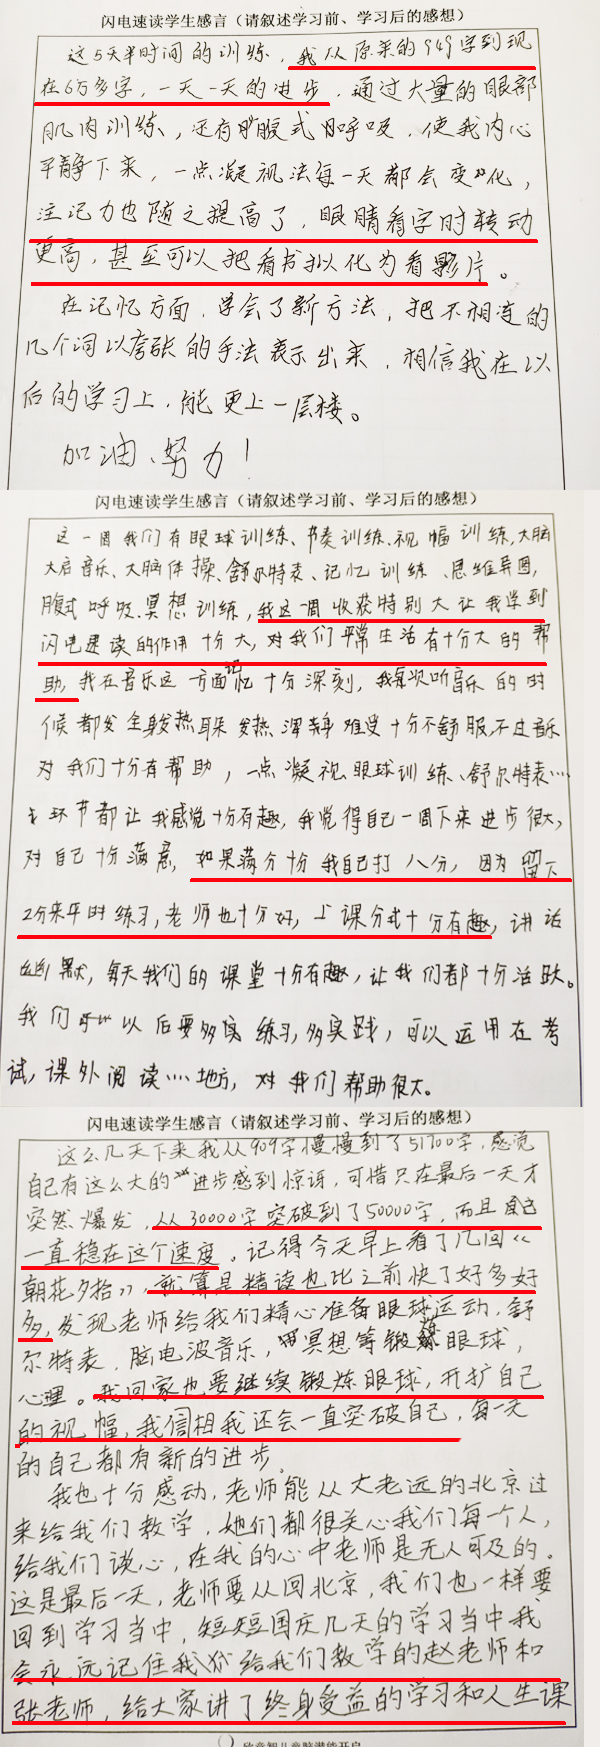 闪电速读学生感言（请叙述学习前、学习后的感想）
这5天半时间的训练，我从原来的949字到现
在6万多字，一天一天的进步，通过大量的眼部
肌肉训练，还有腹式呼吸，使我内心
平静下来，一点凝视法每一天都会变化，
注记力也随之提高了，眼睛看字时转动
更高，甚至可以把看书拟化为看影片。
在记忆方面，学会了新方法，把不相连的
几个词以夸张的手法表示出来，相信我在以
后的学习上，能更上一层楼。
加油、努力！
闪电速读学生感言（请叙述学习前、学习后的感想）
这一周我们有眼球训练、节奏训练、视幅训练，大脑
大启音乐、大脑体操、舒尔特表、记忆训练、思维导图，
腹式呼吸、冥想训练，我这一周收获特别大让我学到
闪电速读的作用十分大，对我们平常生活有十分大的帮
助，我在音乐这一方面记忆十分深刻，我每次听音乐的时
候都发全身发热耳朵发热浑身难受十分不舒服，不过音乐
对我们十分有帮助，一点凝视、眼球训练、舒尔特表……
环节都让我感觉十分有趣，我觉得自己一周下来进步很大，
对自己十分满意，如果满分十分我自己打八分，因为留下
2分来平时练习，老师也十分好，上课分式十分有趣，讲话
幽默，每天我们的课堂十分有趣，让我们都十分活跃。
我们以后要多练习，多实践，可以运用在考
试，课外阅读……地方，对我们帮助很大。
闪电速读学生感言（请叙述学习前、学习后的感想）
这么几天下来我从909字慢慢到了51700字，感觉
自己有这么大的进步感到惊讶，可惜只在最后一天才
突然爆发，从30000字突破到了50000字，而且自己
一直稳在这个速度。记得今天早上看了几回《
朝花夕拾》，就算是精读也比之前快了好多好
多，发现老师给我们精心准备眼球运动，舒
尔特表，脑电波音乐，冥想等锻炼眼球，
心理。我回家也要继续锻炼眼球，开扩自己
的视幅，我信相我还会一直突破自己，每一天
的自己都有新的进步。
我也十分感动，老师能从大老远的北京过
来给我们教学，她们都很关心我们每个人，
给我们谈心，在我的心中老师是无人可及的。
这是最后一天，老师要从回北京，我们也一样要
回到学习当中，短短国庆几天的学习当中我
会永远记住我们给我们教学的赵老师和
张老师，给大家讲了终身受益的学习和人生课